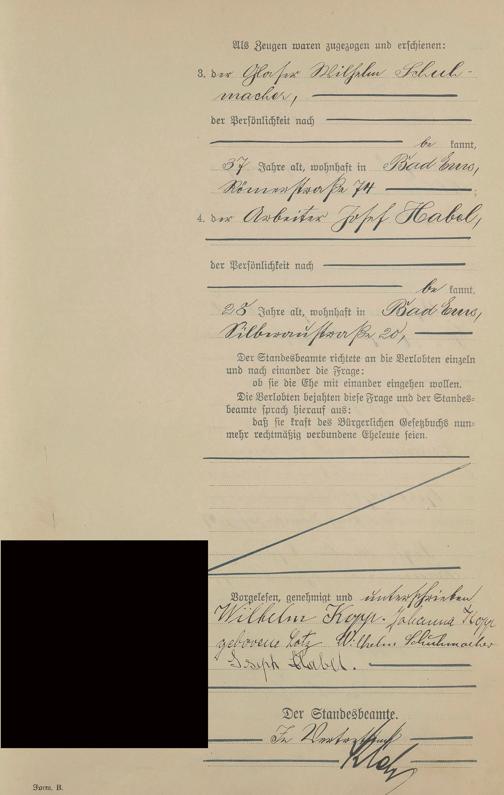 Als Zeugen waren zugezogen und erschienen:
3. der Glaser Wilhelm Schuh-
macher,
der Persönlichkeit nach
be kannt,
37 Jahre alt, wohnhaft in Bad Ems,
Römerstraße 74 ;
4. der Arbeiter Josef Habel,
der Persönlichkeit nach
be kannt,
28 Jahre alt, wohnhaft in Bad Ems,
Silberaustraße 20,
Der Standesbeamte richtete an die Verlobten einzeln
und nach einander die Frage:
ob sie die Ehe mit einander eingehen wollen.
Die Verlobten bejahten diese Frage und der Standes=
beamte sprach hierauf aus:
daß sie kraft des Bürgerlichen Gesetzbuchs nun=
mehr rechtmäßig verbundene Eheleute seien.
Vorgelesen, genehmigt und unterschrieben
Wilhelm Kopp. Johanna Kopp
geborene Lotz Wilhelm Schuhmacher
Joseph Habel.
Der Standesbeamte.
In Vertretung
Form. B.